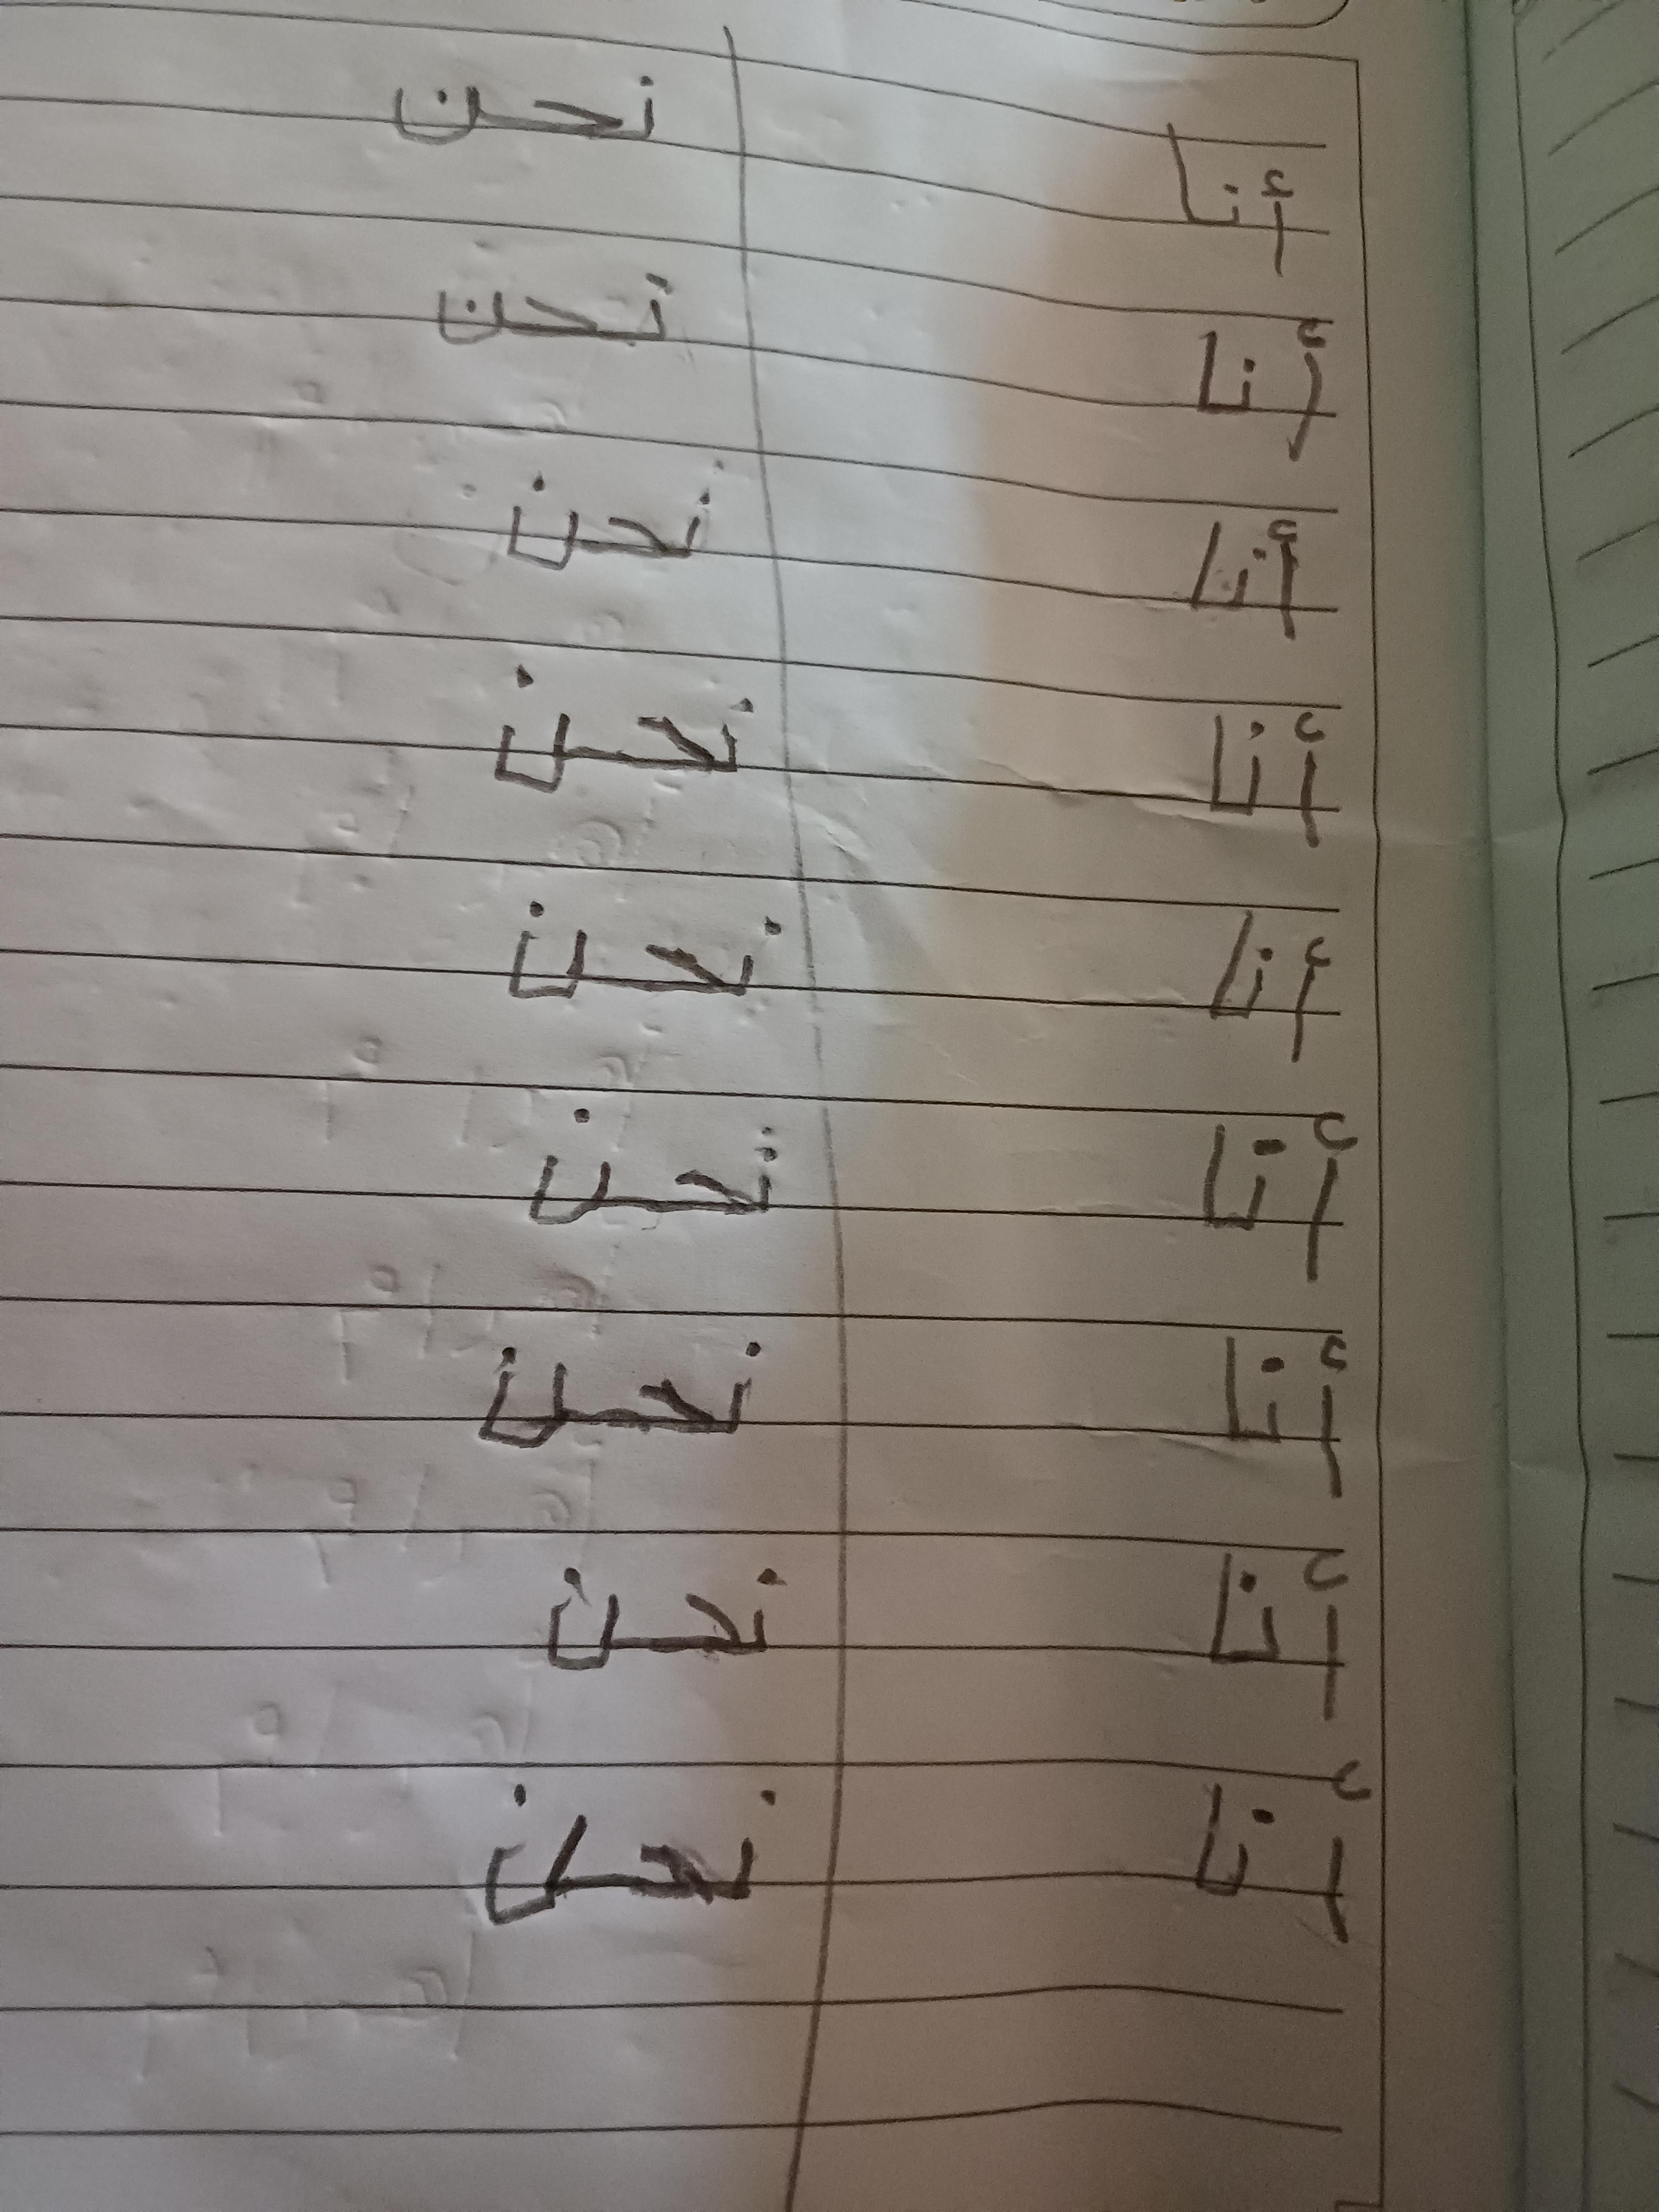 أنا نحن
أنا نحن
أنا نحن
أنا نحن
أنا نحن
أنا نحن
أنا نحن
أنا نحن
أنا نحن